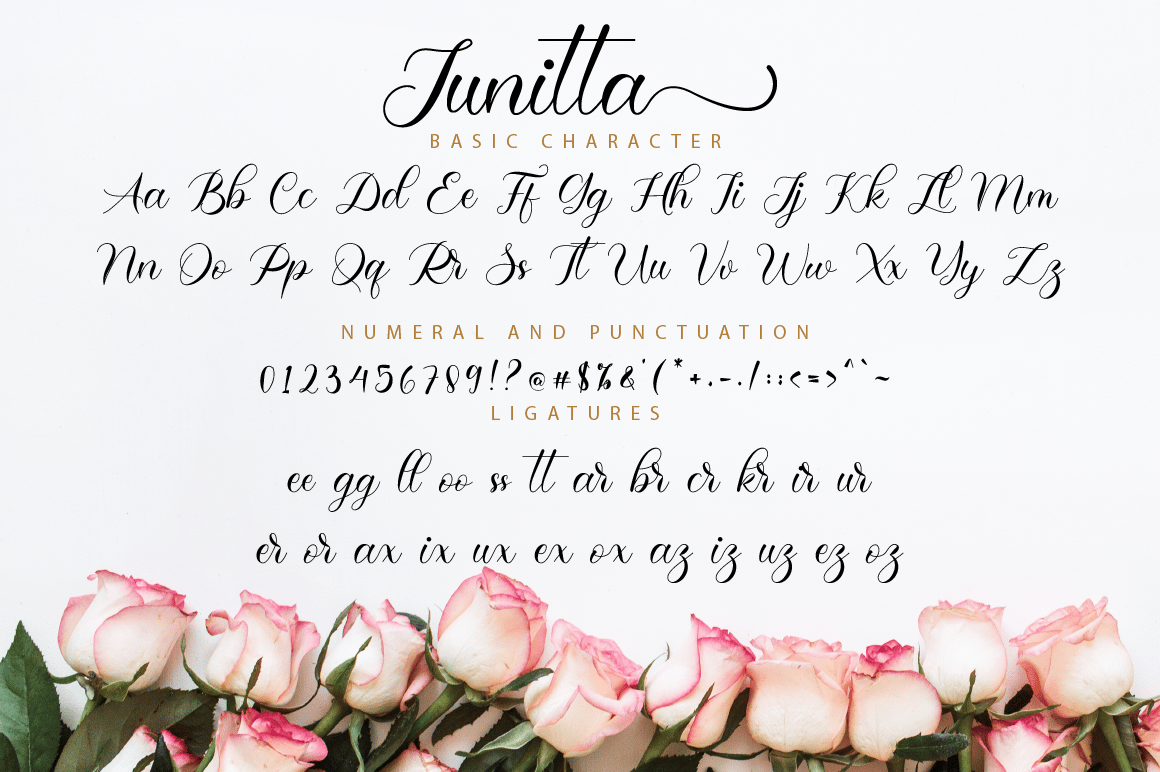 Junitta
BASIC CHARACTER
Aa Bb Cc Dd Ee Ff Gg Hh Ii Jj Kk Ll Mm
Nn Oo Pp Qq Rr Ss Tt Uu Vv Ww Xx Yy Zz
NUMERAL AND PUNCTUATION
0123456789!?@#$%&'(*+,-./:;<=>^`~
LIGATURES
ee gg ll oo ss tt ar br cr kr ir ur
er or ax ix ux ex ox az iz uz ez oz